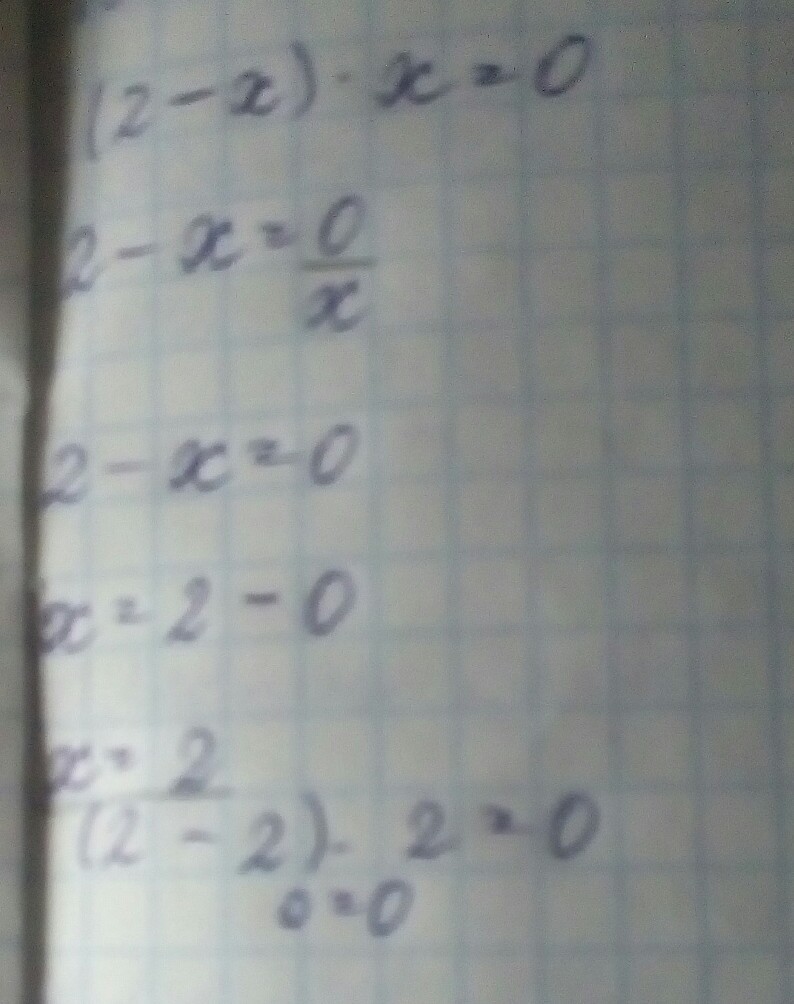 (2 - x) · x = 0
2 - x = 0/x
2 - x = 0
x = 2 - 0
x = 2
(2 - 2) · 2 = 0
0 = 0